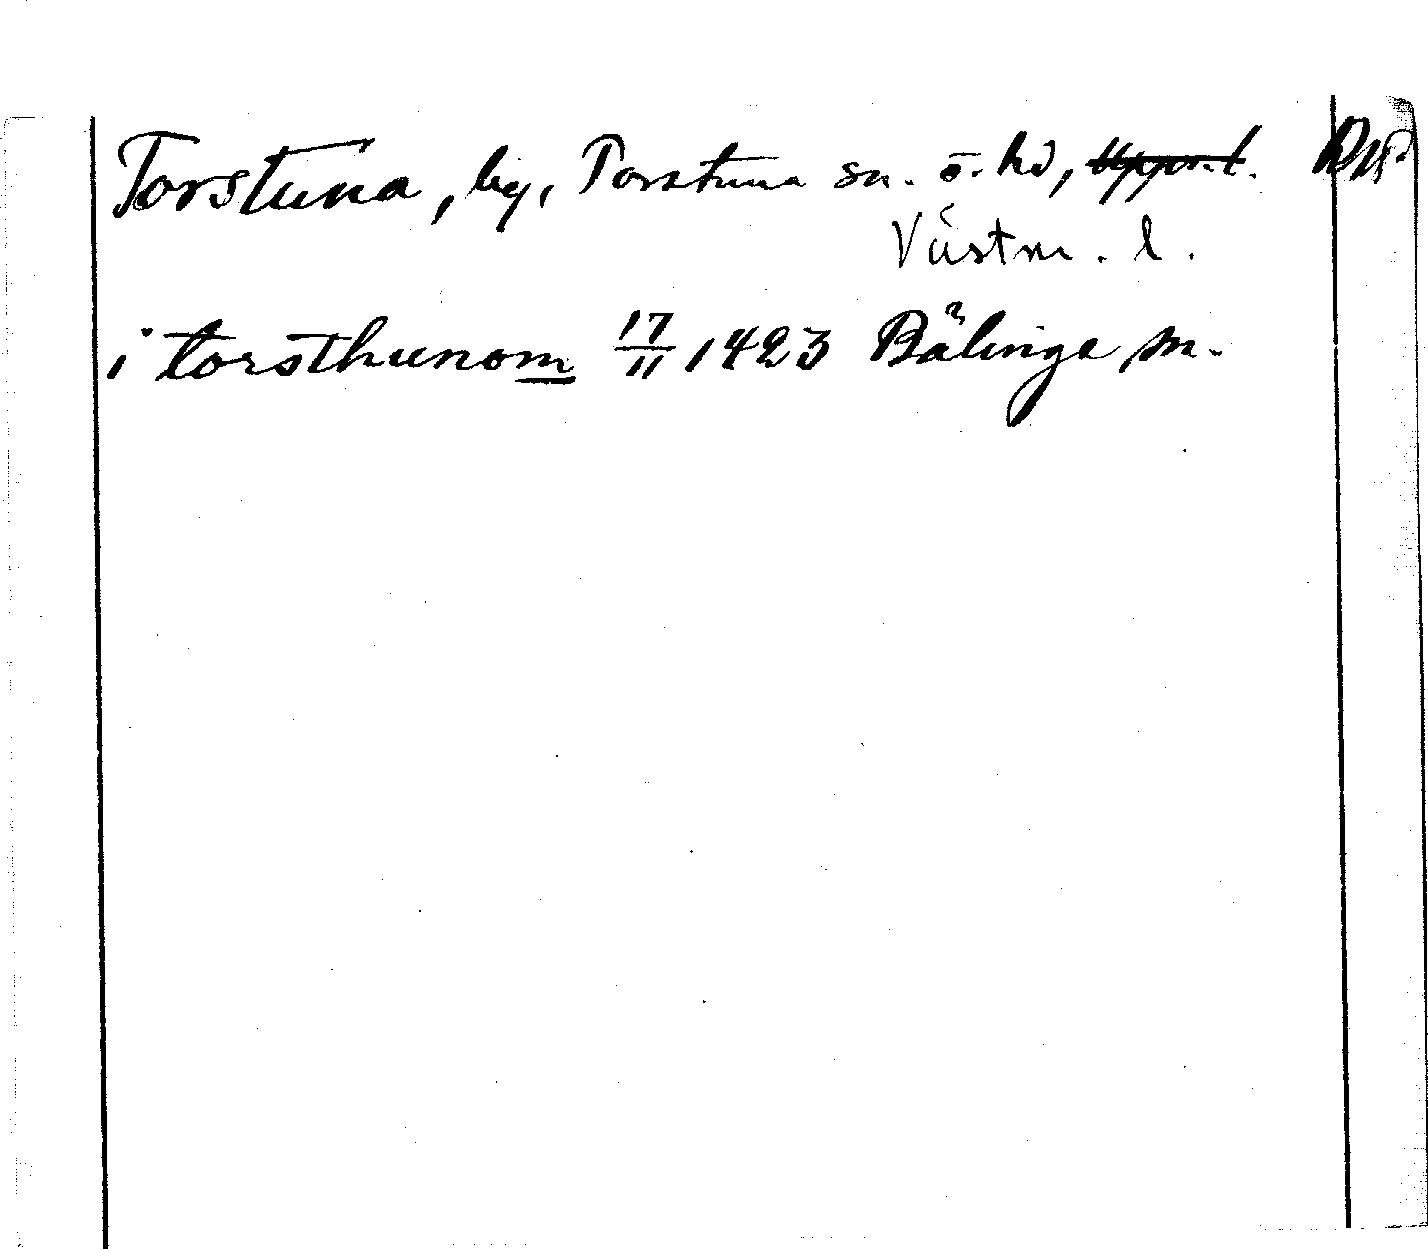 Torstuna, by, Torstuna sn. o. hd, Uppvs. l.
Västm. l.
i torsthunom 17/11 1423 Bälinge sn.